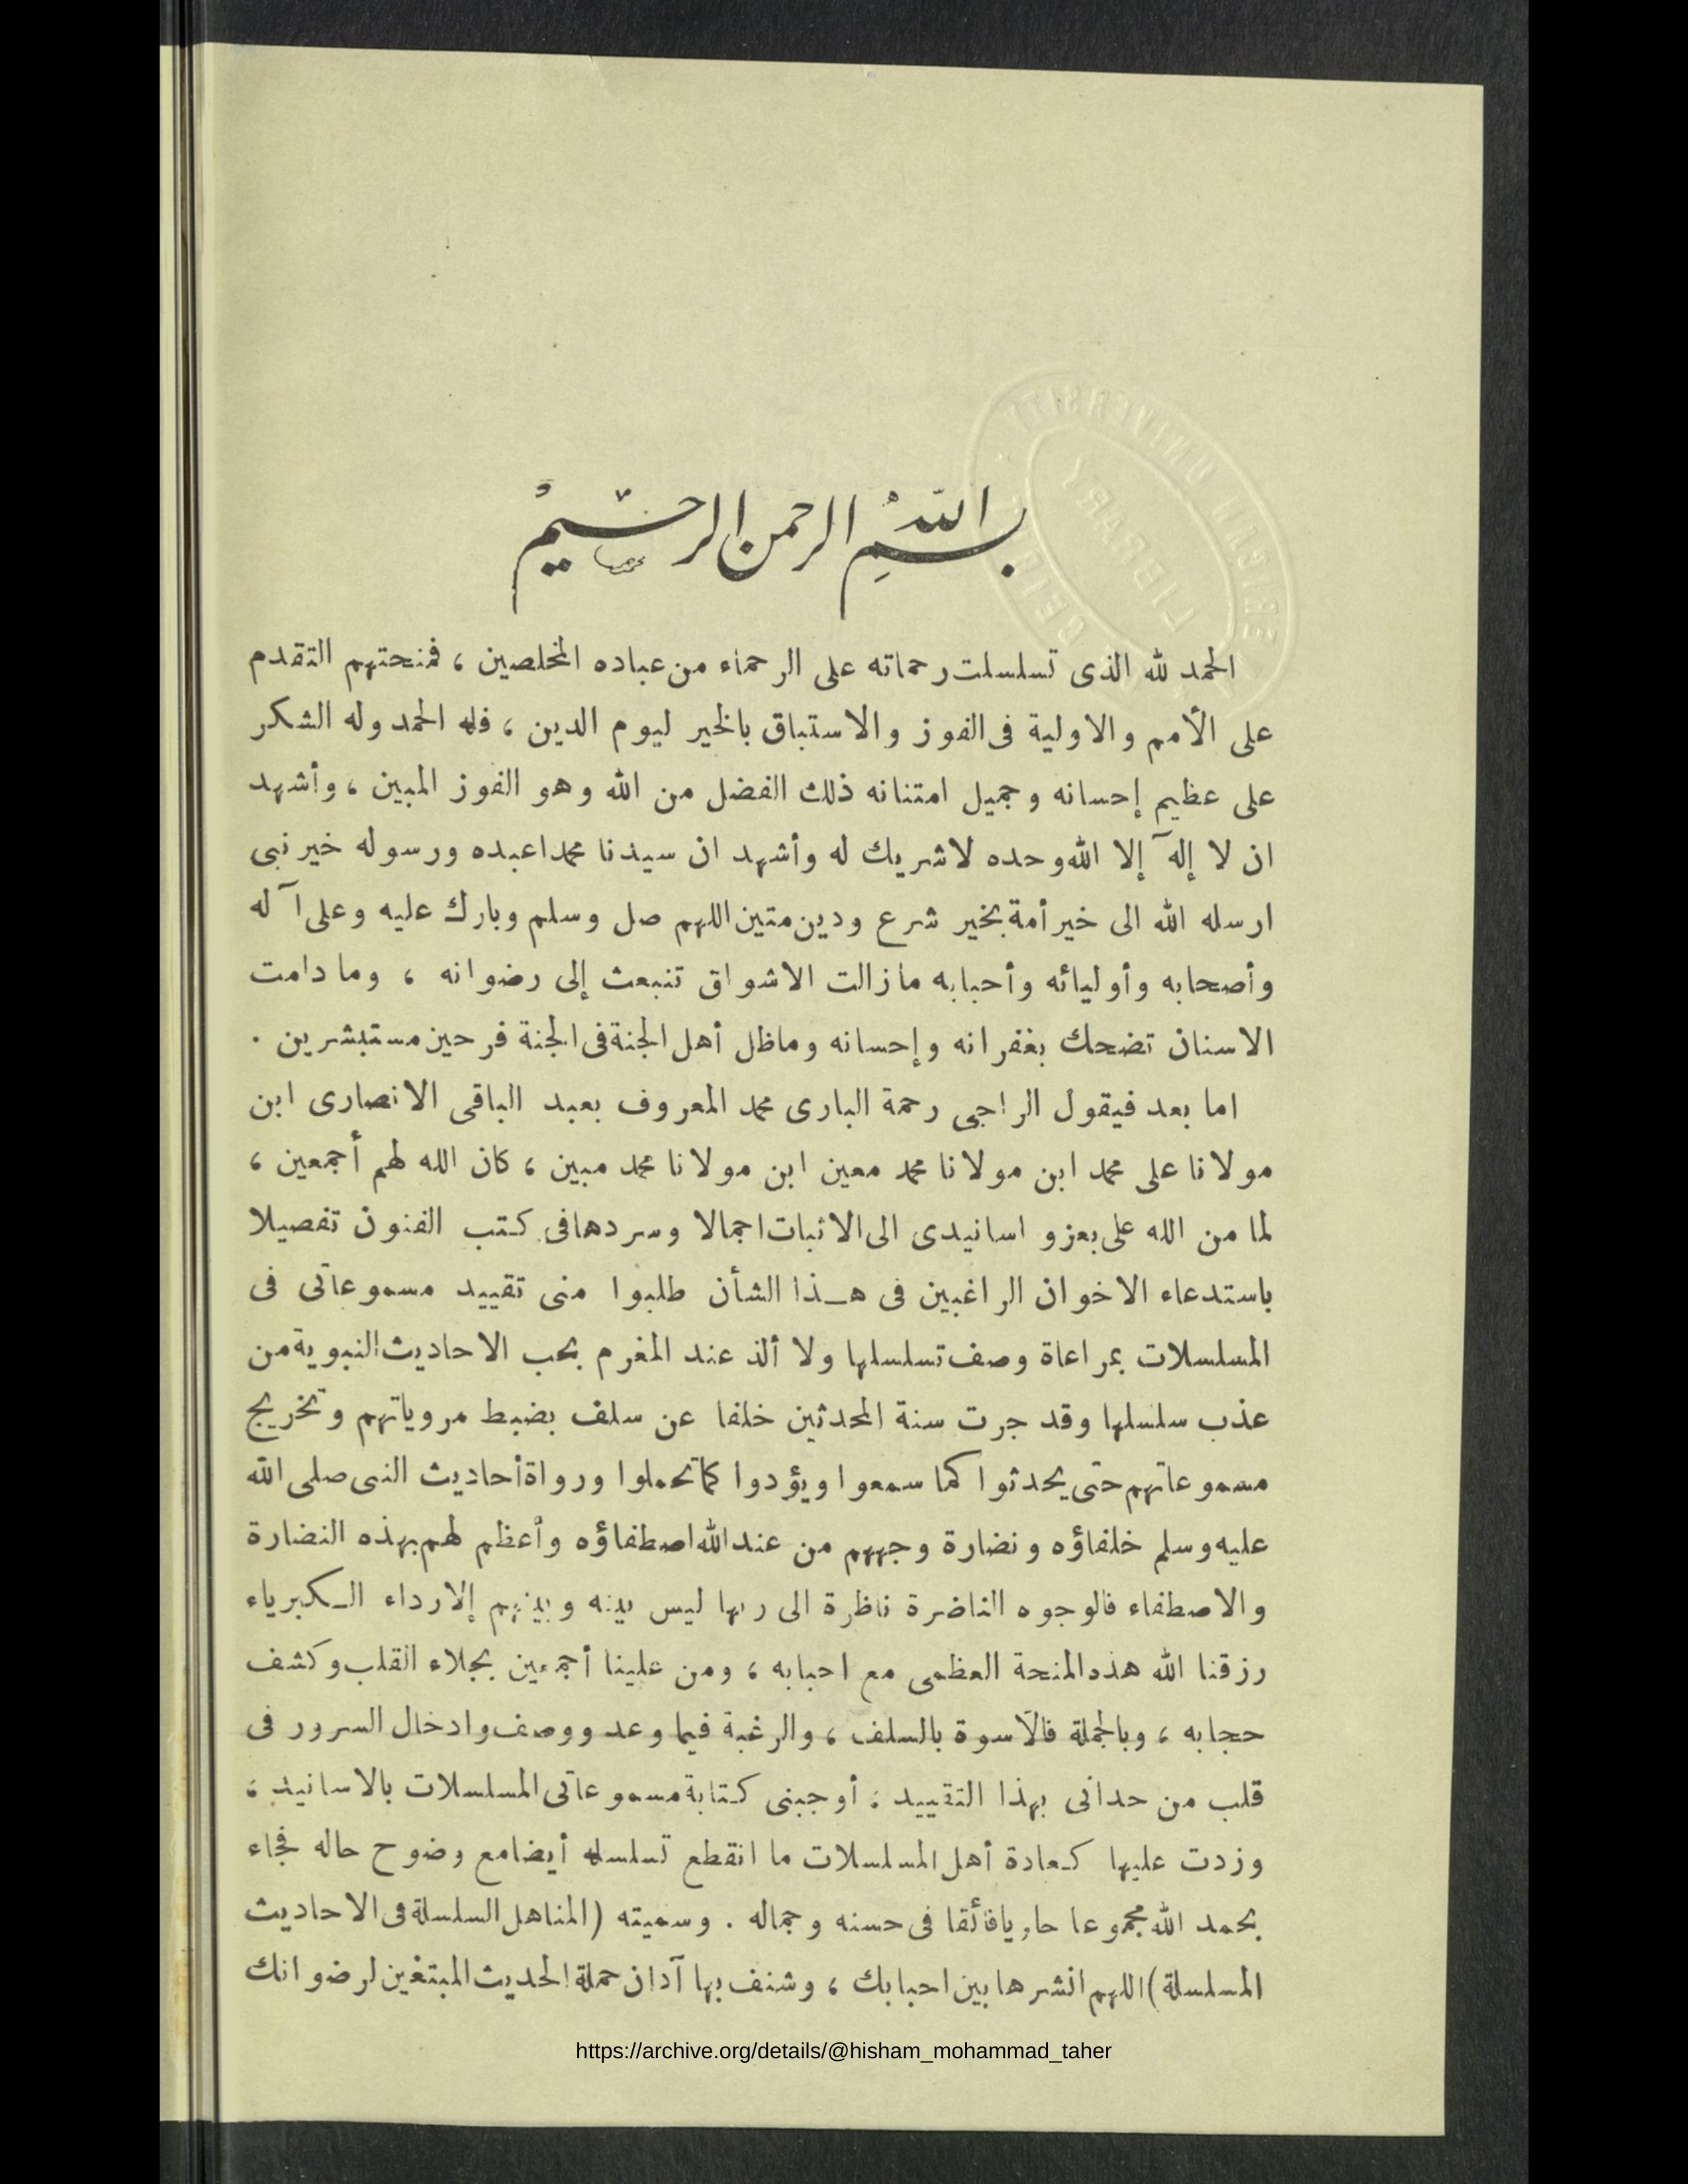 بسم الله الرحمن الرحيم
الحمد لله الذى تسلسلت رحماته على الرحماء من عباده المخلصين ، فمنحتهم التقدم
على الأمم والاولية فى الفوز والاستباق بالخير ليوم الدين ، فله الحمد وله الشكر
على عظيم إحسانه وجميل امتنانه ذلك الفضل من الله وهو الفوز المبين ، وأشهد
ان لا إله إلا الله وحده لاشريك له وأشهد ان سيدنا محمدا عبده ورسوله خير نبى
ارسله الله الى خير أمة بخير شرع ودين متين اللهم صل وسلم وبارك عليه وعلى آله
وأصحابه وأوليائه وأحبابه مازالت الاشواق تنبعث إلى رضوانه ، وما دامت
الاسنان تضحك بغفرانه وإحسانه وماظل أهل الجنة فى الجنة فرحين مستبشرين .
اما بعد فيقول الراجى رحمة البارى محمد المعروف بعبد الباقى الانصارى ابن
مولانا على محمد ابن مولانا محمد معين ابن مولانا محمد مبين ، كان الله لهم أجمعين ،
لما من الله على بعزو اسانيدى الى الاثبات اجمالا وسردها فى كتب الفنون تفصيلا
باستدعاء الاخوان الراغبين فى هذا الشأن طلبوا منى تقييد مسموعاتى فى
المسلسلات بمراعاة وصف تسلسلها ولا ألذ عند المغرم بحب الاحاديث النبوية من
عذب سلسلها وقد جرت سنة المحدثين خلفا عن سلف بضبط مروياتهم وتخريج
مسموعاتهم حتى يحدثوا كما سمعوا ويؤدوا كما تحملوا ورواة أحاديث النبى صلى الله
عليه وسلم خلفاؤه ونضارة وجههم من عند الله اصطفاؤه وأعظم لهم بهذه النضارة
والاصطفاء فالوجوه الناضرة ناظرة الى ربها ليس بينه وبينهم إلارداء الكبرياء
رزقنا الله هذه المنحة العظمى مع احبابه ، ومن علينا أجمعين بجلاء القلب وكشف
حجابه ، وبالجملة فالأسوة بالسلف ، والرغبة فيما وعد ووصف وادخال السرور فى
قلب من حدانى بهذا التقييد ، أوجبنى كتابة مسموعاتى المسلسلات بالاسانيد ،
وزدت عليها كعادة أهل المسلسلات ما انقطع تسلسله أيضا مع وضوح حاله فجاء
بحمد الله مجموعا حاويا فائقا فى حسنه وجماله . وسميته (المناهل السلسلة فى الاحاديث
المسلسلة) اللهم انشرها بين احبابك ، وشنف بها آذان حملة الحديث المبتغين لرضوانك
https://archive.org/details/@hisham_mohammad_taher